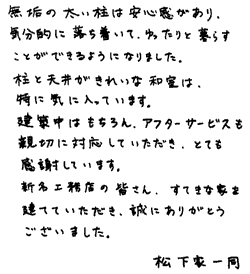 無垢の太い柱は安心感があり、
気分的に落ち着いて、ゆったりと暮らす
ことができるようになりました。
柱と天井がきれいな和室は、
特に気に入っています。
建築中はもちろん、アフターサービスも
親切に対応していただき、とても
感謝しています。
新名工務店の皆さん、すてきな家を
建てていただき、誠にありがとう
ございました。
松下家一同